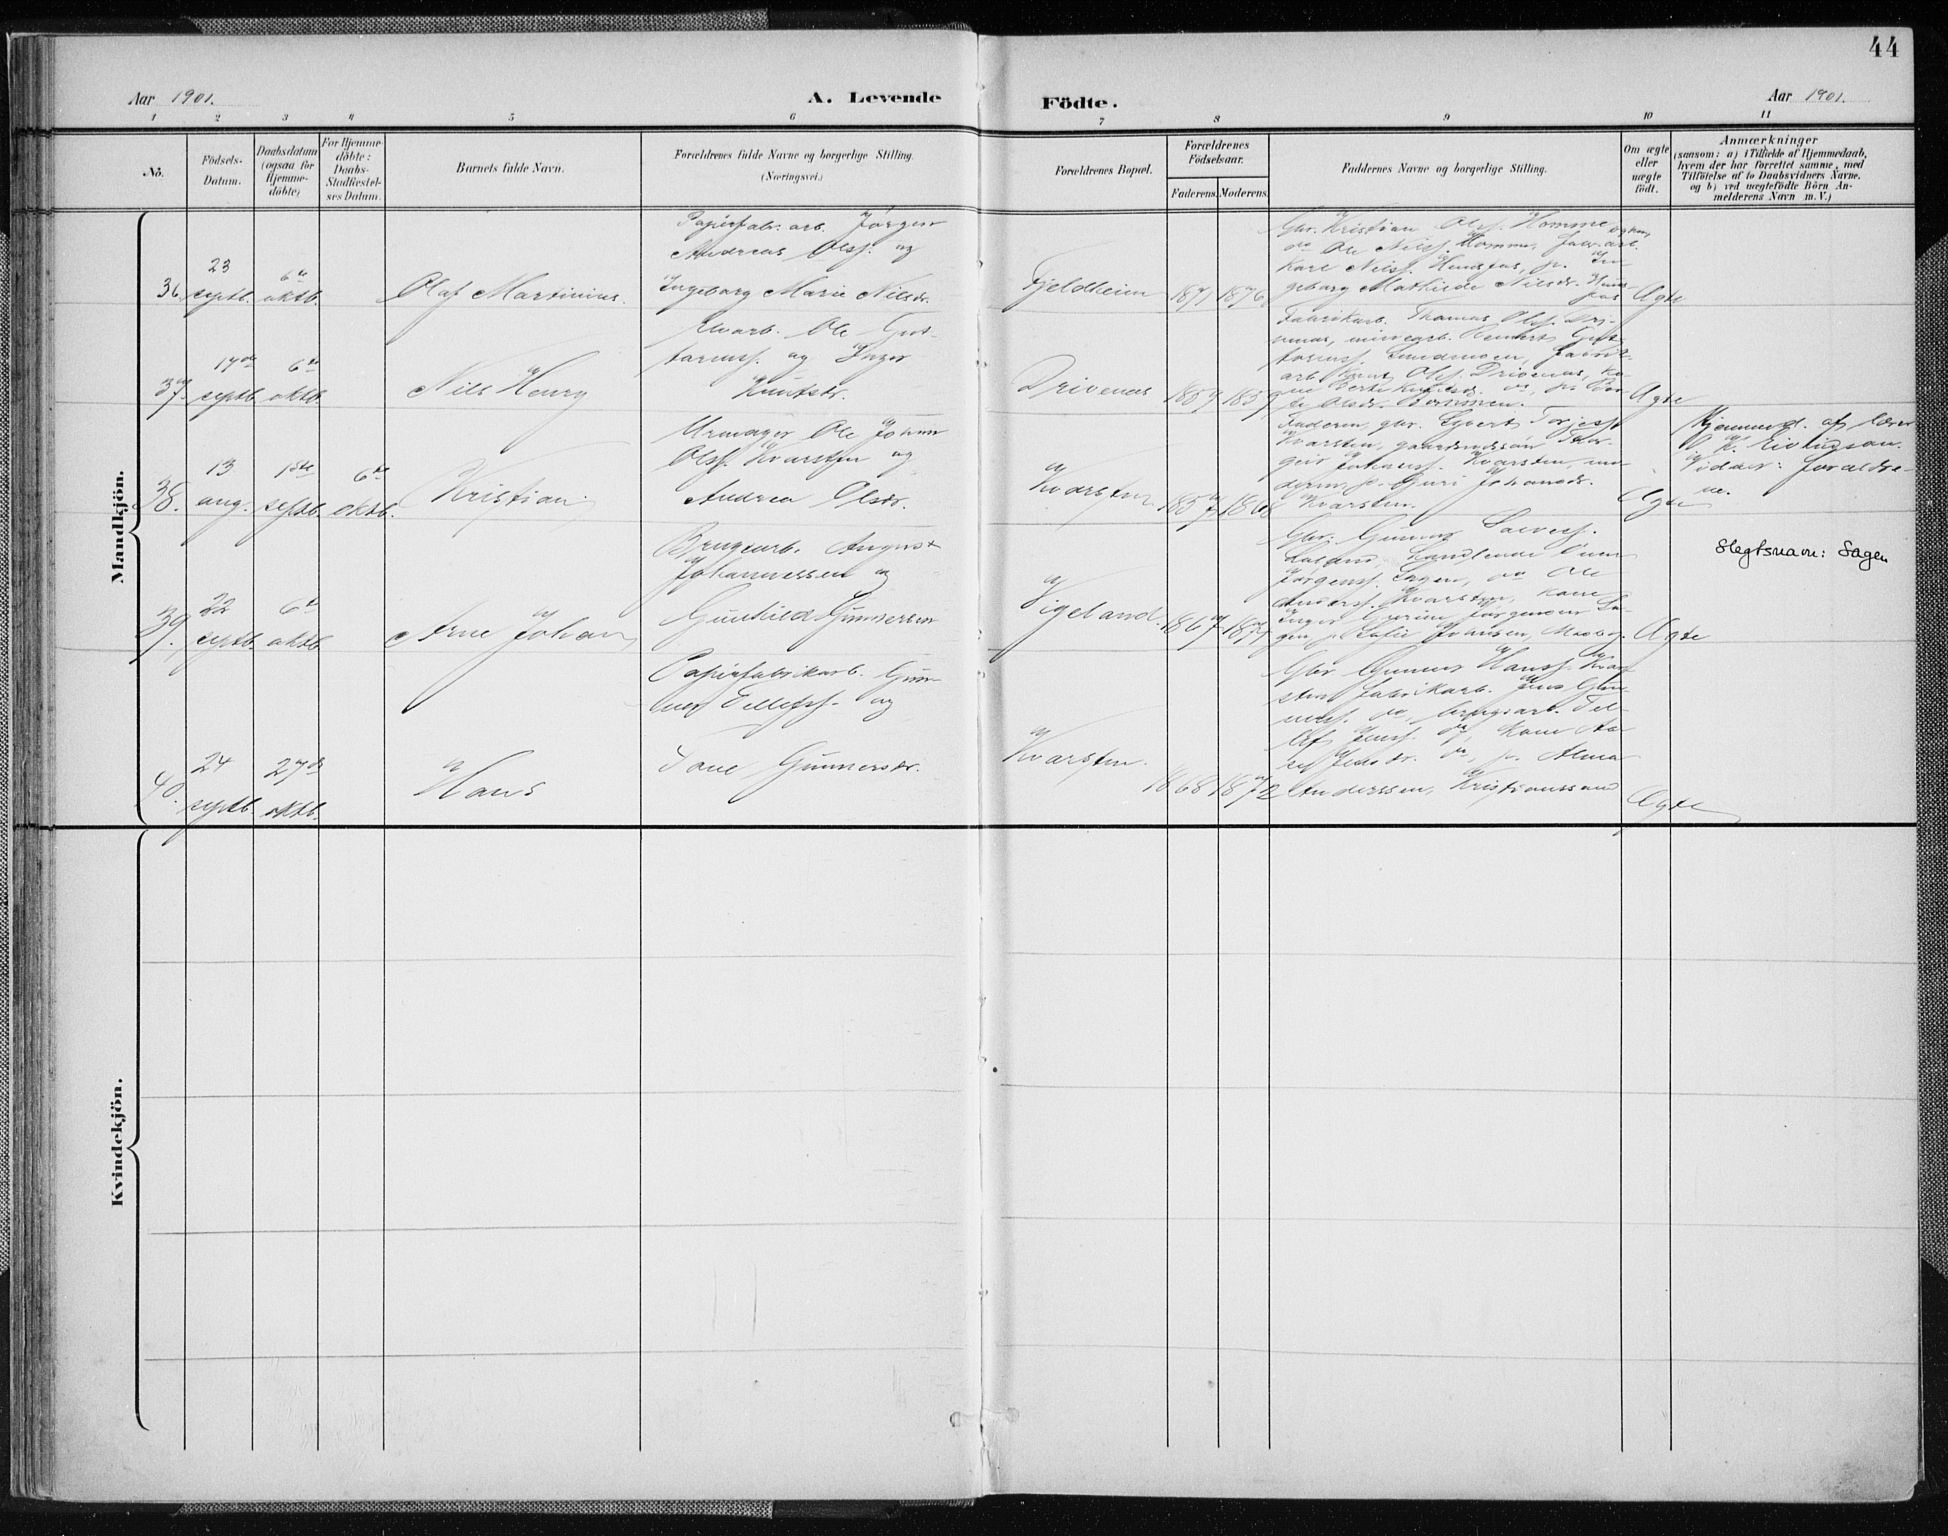 44
Aar 1901.
A. Levende
Födte.
Aar 1901.
1 2 3 4 5 6 7 8 9 10 11
No.
Födsels-
Datum.
Daabsdatum
(ogsaa for
Hjemme-
döbte)
For Hjemme-
döbte:
Daabs-
Stadfæstel-
ses Datum.
Barnets fulde Navn.
Forældrenes fulde Navne og borgerlige Stilling.
(Næringsvei.)
Forældrenes Bopæl.
Forældrenes
Födselsaar.
Faderens. Moderens.
Faddernes Navne og borgerlige Stilling.
Om ægte
eller
uægte
födt.
Anmærkninger
(saasom: a) i Tilfælde af Hjemmedaab,
hvem der har forrettet samme, med
Tilföielse af to Daabsvidners Navne.
og b) ved uægtefödte Börn An-
melderens Navn m. V.)
Mandkjön.
36
23
septb.
6te
oktb.
Olaf Martinius.
Papirfabr. arb. Jørgen
Andreas Olss. og
Ingeborg Marie Nilsdr.
Fjeldheim
1871
1876
Gbr. Kristian Olss. Homme
do Ole Nilss. Homme, fabr. arb.
Karl Nilss. Hunsfos, p. In-
geborg Mathilde Nilsdr. Huns-
fos
Ægte
37.
17de
septb.
6te
oktb.
Nils Henry
Elvarb. Ole Gus-
tavenss. og Inger
Knutsdr.
Drivenes
1857
1859
Fabrikarb. Thomas Olss. Dri-
venes, minearb.
arb. Knut Olss. Drivenes,
Ægte
38.
13
aug.
1ste
septb.
6te
oktb.
Kristian
Urmager Ole Johan
Olss. Kvarsten og
Andrea Olsdr.
Kvarsten
1857
1868
Faderen, gbr. Syvert Torjess.
Kvarsten, gaardmdssøn Tor-
geir Johanss. Kvarsten, mo-
deren, p. Guri Johansdr.
Kvarsten.
Ægte
Hjemmed. af lærer
Vidner: forældre-
ne.
39.
22
septb.
6te
oktb.
Arne Johan
Brugsarb. August
Johannessen og
Gunhild Gunnersen
Vigeland.
1867
1877
Gbr. Gunner Salvess.
Jørgenss. Sagen, do Ole
Anderss. Kvarsten, kone
Inger Jørgensen Sa-
gen p. Sofie Iversen,
Ægte
Slegtsnavn: Sagen
40.
24
septb.
27de
oktb.
Hans
Papirfabrikarb. Gun-
ner Tellefss. og
Tone Gunnersdr.
Kvarsten.
1868
1872
Gbr Gunner Hanss. Kvar-
sten fabrikarb. Jens Gun-
nerss. do, brugsarb. Tel-
lef Jenss. do, kone Aa-
se Jensdr. do, p. Alma
Anderssen, Kristianssand
Ægte
Kvindekjön.